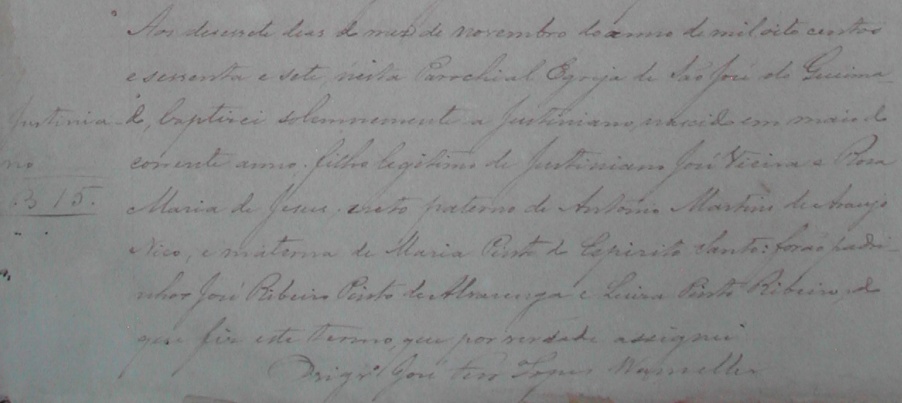 Aos desesete dias do mes de novembro do anno de mil oito centos
e sessenta e sete, nesta Parochial Egreja de São José do Queima-
Justinia-
do, baptizei solemnemente a Justiniano, nascido em maio do
no
corrente anno. filho legitimo de Justiniano José Vieira e Rosa
315.
Maria de Jesus. neto paterno de Antonio Martins de Araujo
Nico, e materna de Maria Pinto do Espirito Santo: forão padri-
nhos José Ribeiro Pinto de Alvarenga e Luiza Pinto Ribeiro, do
que fiz este termo, que por verdade assignei
José Lopes